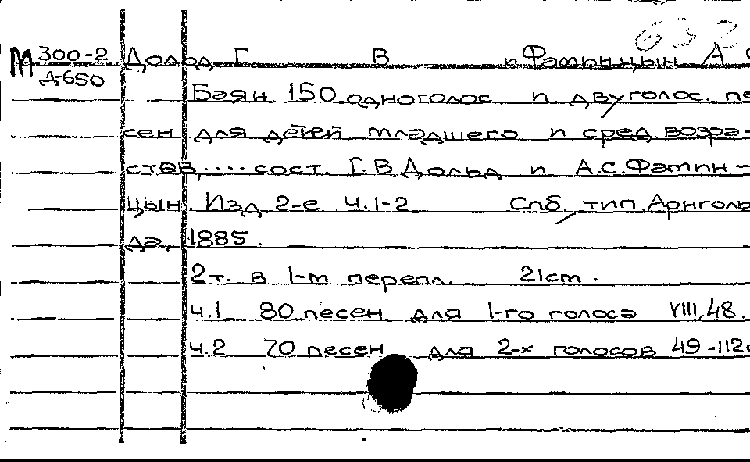 632
М 300-2 Дольд Г. В. и Фаминцын А С
Д650
Баян 150 одноголос и двуголос. пе
сен для детей младшего и сред возра-
стов,.... сост. Г.В.Дольд и А.С.Фамин-
цын. Изд 2-е ч.1-2 Спб, тип.Арнгольд
да, 1885.
2т. в 1-м перепл. 21cm.
ч.1 80 песен для 1-го голоса VIII,48.
ч.2 70 песен для 2-х голосов 49-112с